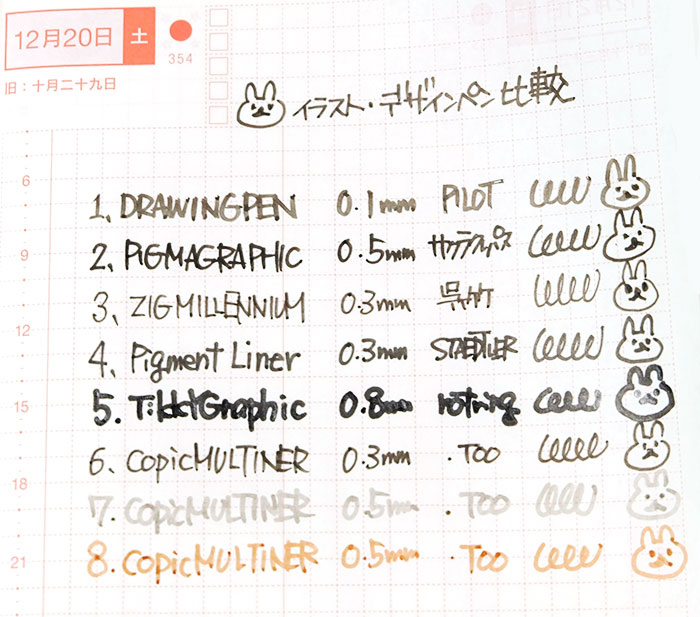 12月20日 土
354
旧：十月二十九日
イラスト・デザインペン比較
6
1. DRAWINGPEN 0.1mm PILOT
9
2. PiGMAGRAPHIC 0.5mm サクラクレパス
3、ZIGMILLENNIUM 0.3mm 呉竹
12
4. Pigment Liner 0.3mm STAEDTLER
15
5. TikkyGraphic 0.8mm rotring
6、CopicMULTINER 0.3mm .Too
18
7. CopicMULTINER 0.5mm .Too
21
8. CopicMULTINER 0.5mm .Too